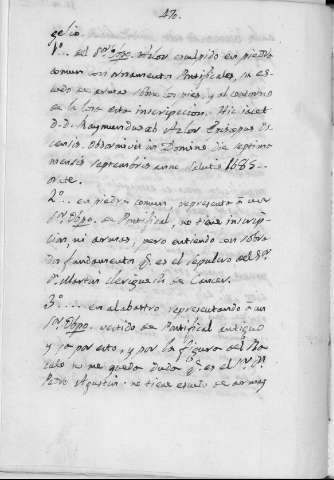 470.
gelio.
1º... el Sr. Obpo. Azlor esculpido en piedra
comun con ornamentos Pontificales, su es-
cudo de armas sobre los pies, y al contorno
de la losa esta inscripcion. Hic iacet
D. D. Raymundus ab Azlor Episcopus Os-
censis. Obdormivit in Domino die septimo
mensis septembris anno salutis 1685..
2º... en piedra comun, representa á un
Sr. Obpo. de Pontifical, no tiene inscrip-
cion, ni armas, pero entiendo con sobra-
do fundamento q. es el sepulcro del Sr.
Dn. Martin Cleriguech de Cancer.
3º.... en alabastro representando á un
Sr. Obpo. vestido de Pontifical antiguo
y ya por esto, y por la figura del Ba-
culo no me queda duda q. es el Sr. Dn.
Pedro Agustin. no tiene escudo de armas